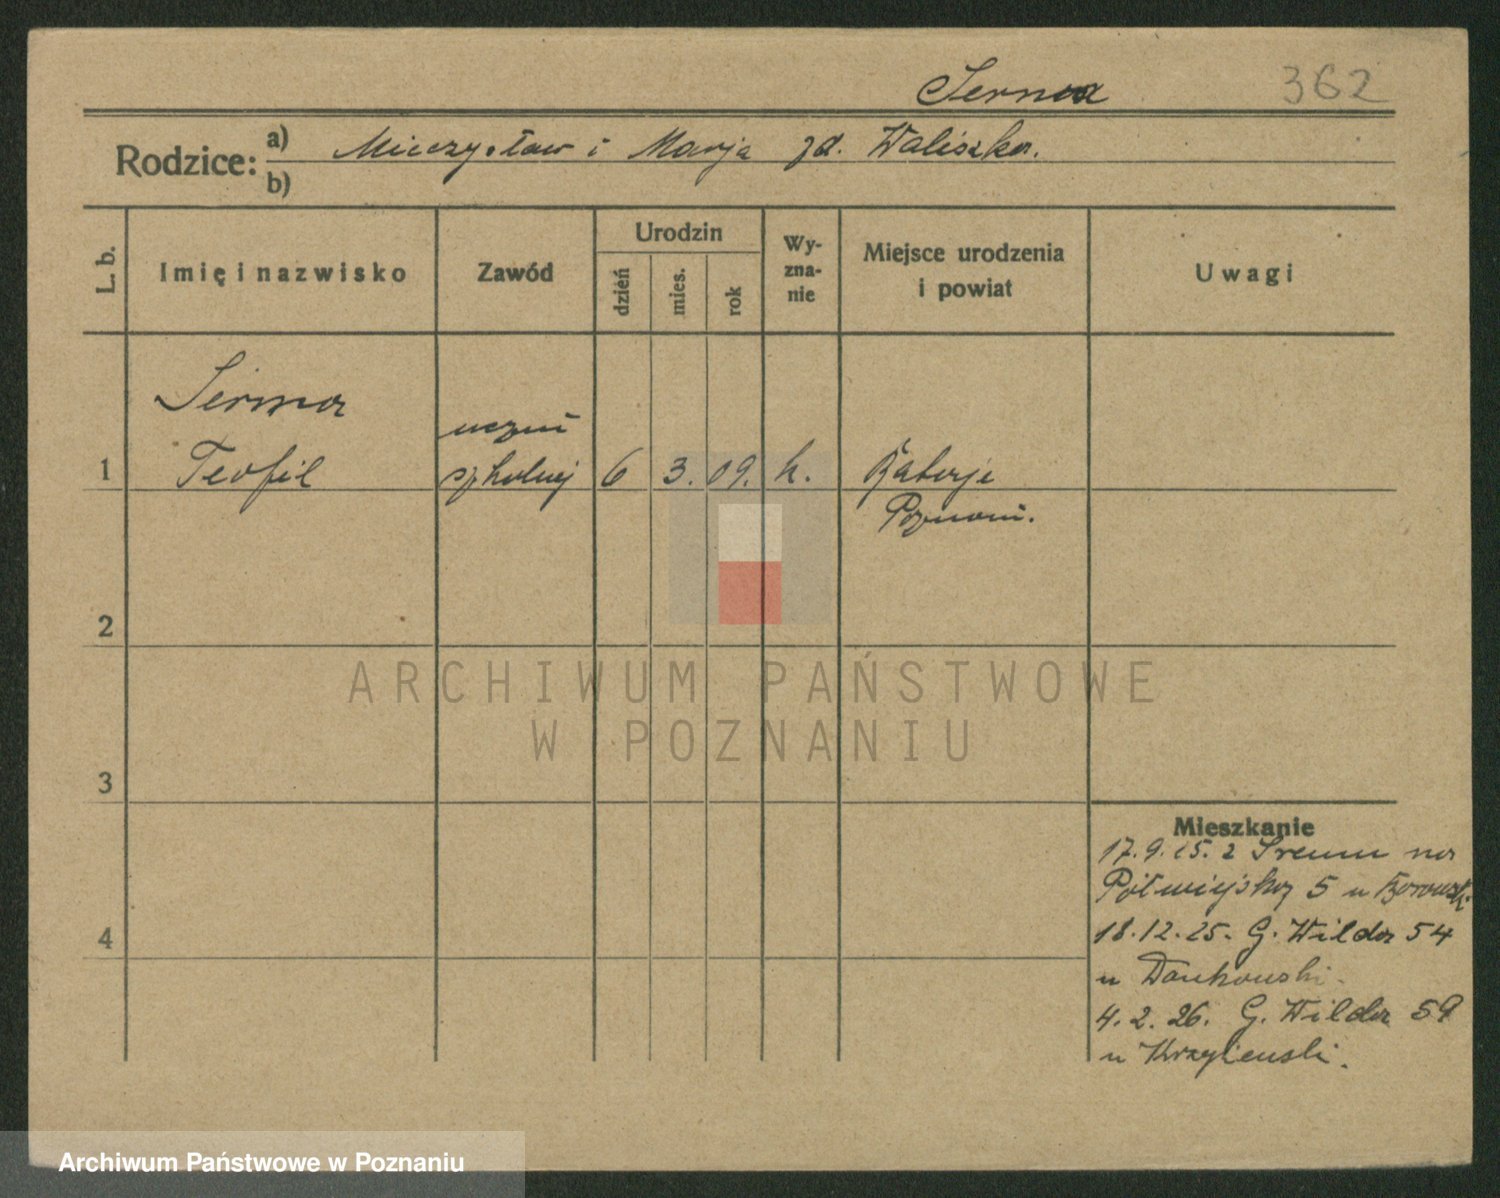 Serma 362
Rodzice: a) Mieczysław i Marja zd. Waliszka.
b)
L. b. Imię i nazwisko Zawód Urodzin dzień mies. rok Wy-zna-nie Miejsce urodzenia i powiat Uwagi
Serma
uczeń
1 Teofil szkolnej 6 3. 09. k.
Poznań.
2
ARCHIWUM PAŃSTWOWE
W POZNANIU
3
Mieszkanie
17.9.25. z Śremu na
Półwiejską 5 u Borowski
4 18.12.25. G. Wilda 54
u Dankowski.
4.2.26. G. Wilda 59
u
Archiwum Państwowe w Poznaniu